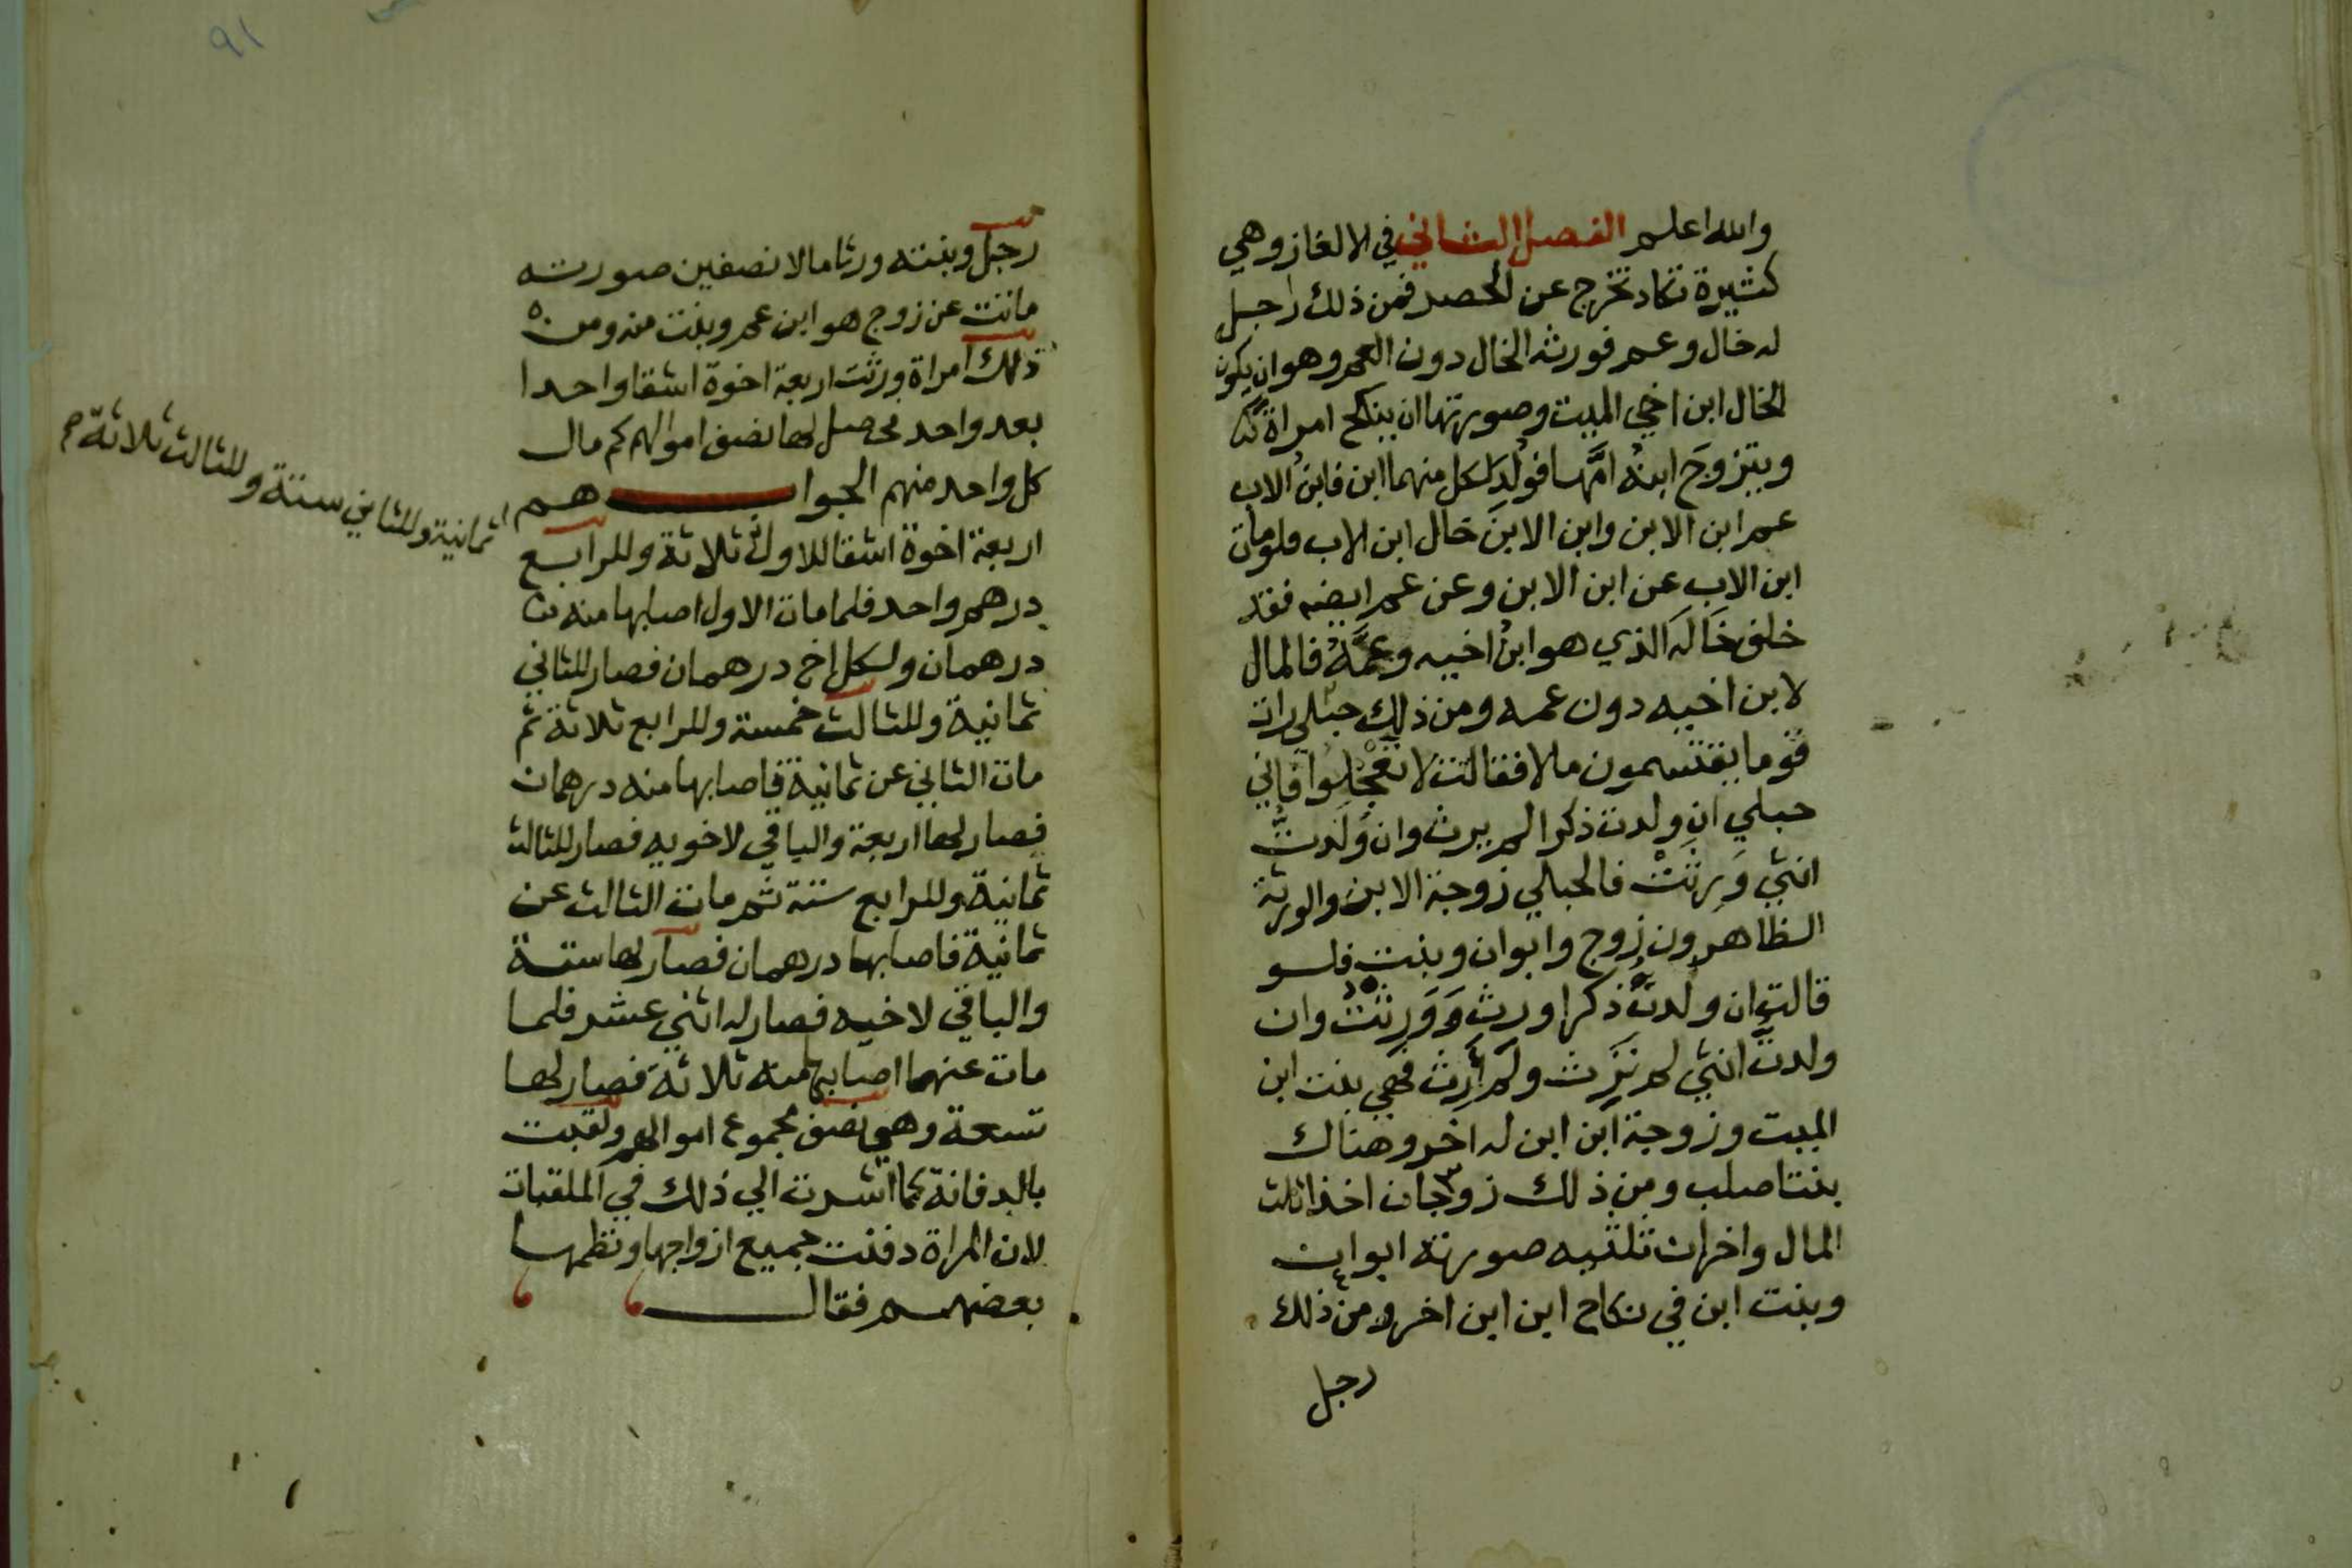 والله اعلم الفصل الثاني في الالغاز وهي
كثيرة تكاد تخرج عن الحصر فمن ذلك رجل
له خال وعم فورثه الخال دون العم وهو ان يكون
الخال ابن اخي الميت وصورتها ان ينكح امراة
ويتزوَج ابنهُ امَّها فوُلِدَ لكل منهما ابن فابنُ الاب
عم ابن الابن وابن الابن خال ابن الاب فلو مات
ابن الاب عن ابن الابن وعن عم ايضا فقد
خلف خَالَه الذي هو ابنُ اخيه وعمَّهُ فالمال
لابن اخيه دون عمه ومن ذلك حبلى رات
قوما يقتسمون مالا فقالت لا تعْجَلُوا فاني
حبلي ان ولدت ذكرا لم يرث وان ولَدتُّ
انثي وَرِثتْ فالحبلي زوجة الابن والورثة
الظاهرون زوج وابوان وبنت فلو
قالت ان ولدتُّ ذكرا ورث وَوَرِثتُ وان
ولدتُّ انثي لم تَرِث ولم أرِث فهي بنت ابن
الميت وزوجة ابن ابن له اخر وهناك
بنتا صلب ومن ذلك زوجان اخذا ثلث
المال واخران ثلثيه صورته ابوان
وبنت ابن في نكاح ابن ابن اخر ومن ذلك
رجل
٩١
رجل وبنته ورثا مالا نصفين صورته
ماتت عن زوج هو ابن عم وبنت منه ومن
ذلك امراة ورثت اربعة اخوة اشقا واحدا
بعد واحد فحصل لها نصف اموالهم كم مال
كل واحد منهم الجواب هم
اربعة اخوة اشقا للاول ثلاثة وللرابع
ثمانية وللثاني ستة وللثالث ثلاثة
درهم واحد فلما مات الاول اصابها منه
درهمان ولكل اخ درهمان فصار للثاني
ثمانية وللثالث خمسة وللرابع ثلاثة ثم
مات الثاني عن ثمانية فاصابها منه درهمان
فصار لها اربعة والباقي لاخويه فصار للثالث
ثمانية وللرابع ستة ثم مات الثالث عن
ثمانية فاصابها درهمان فصار لها ستة
والباقي لاخيه فصار له اثني عشر فلما
مات عنهما اصابها منه ثلاثة فصار لها
تسعة وهي نصف مجموع اموالهم ولقبت
بالدفانة كما اشرت الي ذلك في الملقبات
لان المراة دفنت جميع ازواجها ونظمها
بعضهم فقال